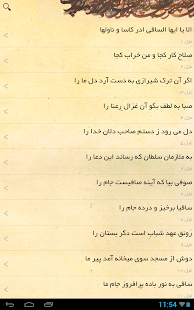 الا یا ایها الساقی ادر کاسا و ناولها
غزل ۱
صلاح کار کجا و من خراب کجا
غزل ۲
اگر آن ترک شیرازی به دست آرد دل ما را
غزل ۳
صبا به لطف بگو آن غزال رعنا را
غزل ۴
دل می رود ز دستم صاحب دلان خدا را
غزل ۵
به ملازمان سلطان که رساند این دعا را
غزل ۶
صوفی بیا که آینه صافیست جام را
غزل ۷
ساقیا برخیز و درده جام را
غزل ۸
رونق عهد شباب است دگر بستان را
غزل ۹
دوش از مسجد سوی میخانه آمد پیر ما
ساقی به نور باده برافروز جام ما
11:54